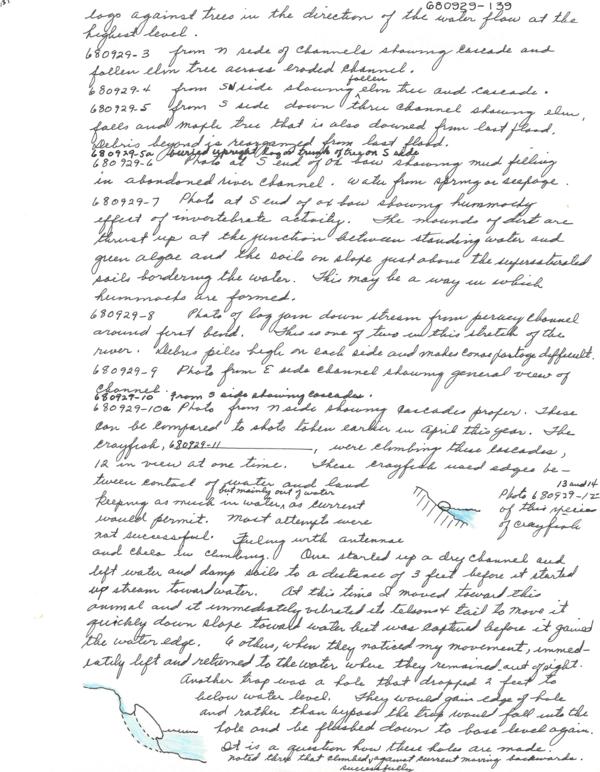 680929-139
logs against trees in the direction of the water flow at the
highest level.
680929-3 from N side of channels showing cascade and
fallen elm tree across eroded channel.
680929-4 from SW side showing fallen elm tree and cascade.
680929-5 from S side down three channel showing elm,
falls and maple tree that is also downed from last flood.
Debris beyond is reorganized from last flood.
680929-5a buried upright log or trunk of tree on S side
680929-6 Photo at S end of ox bow showing mud filling
in abandoned river channel. Water from spring or seepage.
680929-7 Photo at S end of ox bow showing hummocky
effect of invertebrate activity. The mounds of dirt are
thrust up at the junction between standing water and
green algae and the soils on slope just above the supersaturated
soils bordering the water. This may be a way in which
hummocks are formed.
680929-8 Photo of log jam down stream from channel
around first bend. This is one of two in this stretch of the
river. Debris piles high on each side and makes canoe portage difficult.
680929-9 Photo from E side channel showing general view of
channel.
680929-10 from S side showing cascades.
680929-10a Photo from N side showing cascades proper. These
can be compared to shots taken earlier in April this year. The
crayfish, 680929-11 , were climbing these cascades,
12 in view at one time. These crayfish used edges be-
tween contact of water and land
but mainly out of water
keeping as much in water, as current
would permit. Most attempts were
not successful. Feeling with antennae
13 and 14
Photo 680929-12
of this species
of crayfish
and chela in climbing. One started up a dry channel and
left water and damp soils to a distance of 3 feet before it started
up stream toward water. At this time I moved toward this
animal and it immediately vibrated its telson & tail to move it
quickly down slope toward water but was captured before it gained
the water edge. 6 others, when they noticed my movement, immed-
iately left and returned to the water where they remained out of sight.
Another trap was a hole that dropped 2 feet to
below water level. They would gain edge of hole
and rather than bypass the trap would fall into the
hole and be flushed down to base level again.
It is a question how these holes are made.
noted three that climbed against current moving backwards.
successfully